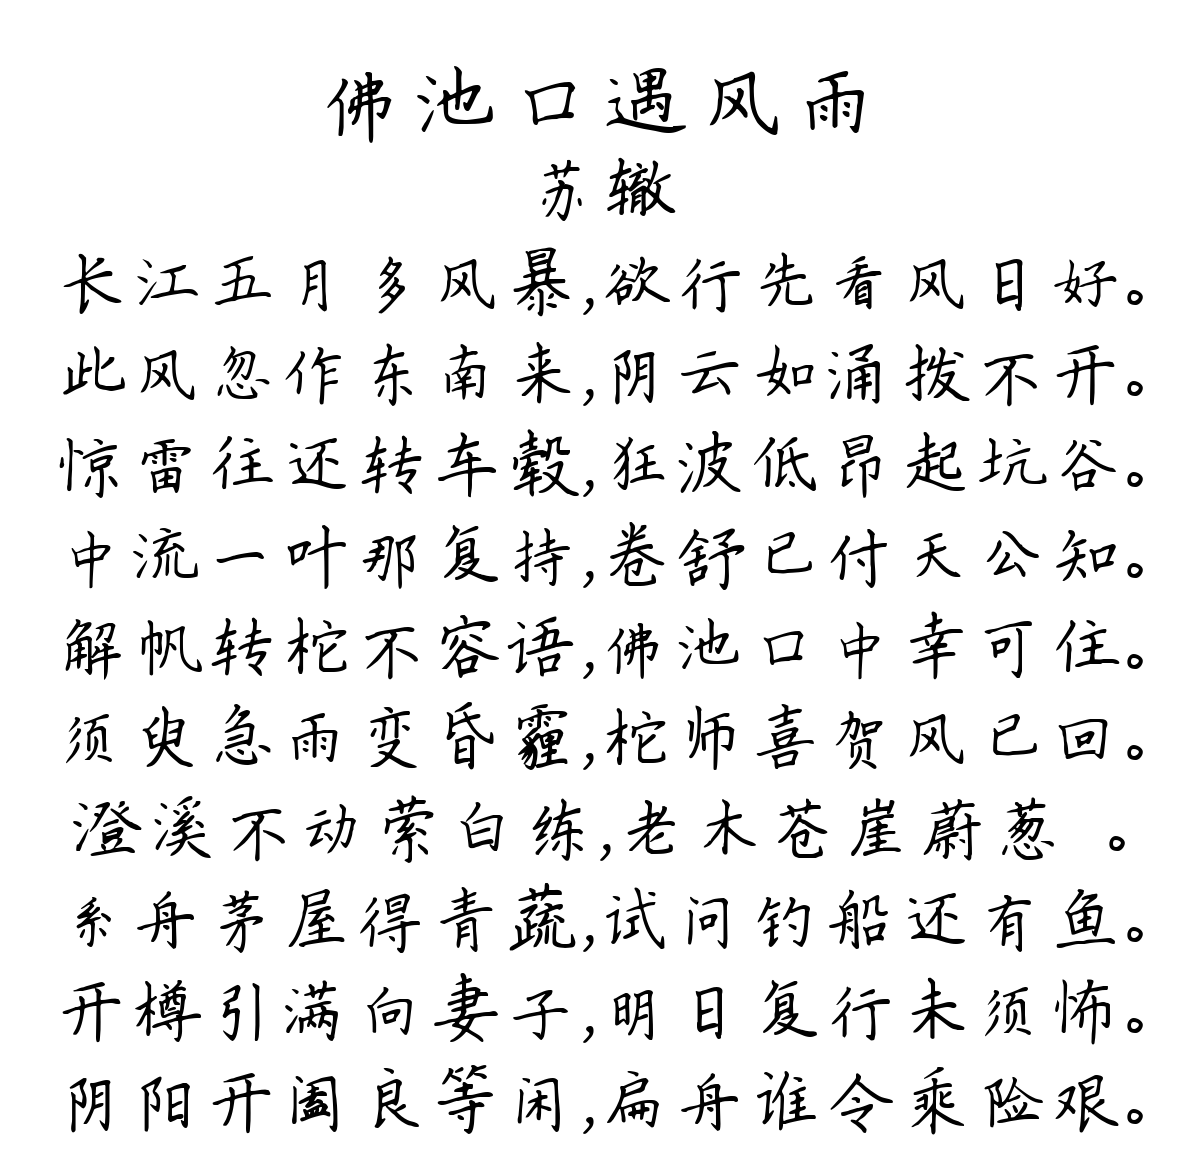 佛池口遇风雨
苏辙
长江五月多风暴,欲行先看风日好。
此风忽作东南来,阴云如涌拨不开。
惊雷往还转车毂,狂波低昂起坑谷。
中流一叶那复持,卷舒已付天公知。
解帆转柁不容语,佛池口中幸可住。
须臾急雨变昏霾,柁师喜贺风已回。
澄溪不动萦白练,老木苍崖蔚葱 。
系舟茅屋得青蔬,试问钓船还有鱼。
开樽引满向妻子,明日复行未须怖。
阴阳开阖良等闲,扁舟谁令乘险艰。